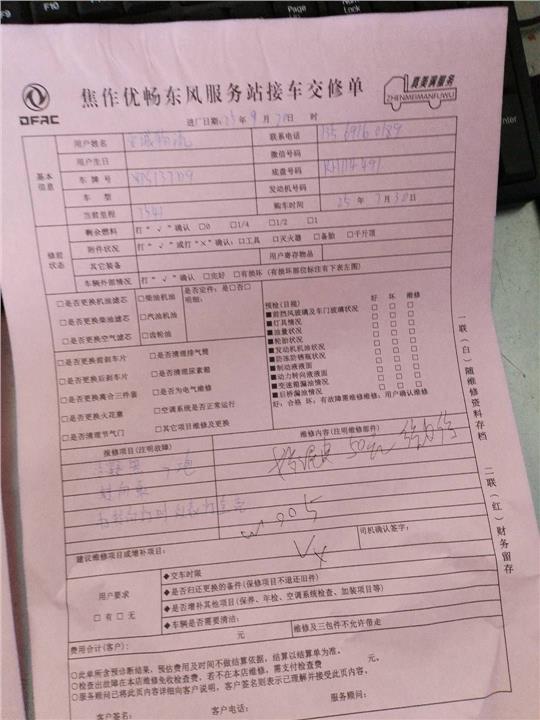 F9 F10
Page Up
Enter
DFAC
焦作优畅东风服务站接车交修单
真美满服务
ZHENMEIMANFUWU
进厂日期: 年 9 月 日 时
基本信息
用户姓名 联系电话
用户生日 微信号码
车牌号 底盘号码
车型 发动机号码
当前里程 7541 购车时间 25 年 7 月 30 日
修前状态
剩余燃料 打“√”确认 □0 □1/4 □1/2 □1
附件状况 打“√”或打“X”确认:□工具 □灭火器 □备胎 □千斤顶
其它装备 用户寄存物品
车辆外部情况 打“√”确认 □完好 □有损坏 (有损坏部位标注有下表左图)
□是否更换机油滤芯 □柴油机油 是否定件: 是□否□
□是否更换柴油滤芯 □汽油机油 明细:
□是否更换空气滤芯 □齿轮油
□是否更换前刹车片 □是否清理排气筒
□是否更换后刹车片 □是否清理尿素箱
□是否更换离合三件套 □是否为电气维修
□是否更换火花塞 □空调系统是否正常运行
□是否清理节气门 □其它项目维修及更换
预检(目视) 好 坏 维修
■前挡风玻璃及车门玻璃状况 □ □ □
■灯具情况 □ □ □
■油量状况 □ □ □
■轮胎状况 □ □ □
■发动机机油状况 □ □ □
■防冻防锈瓶状况 □ □ □
■制动液液面 □ □ □
■动力转向液液面 □ □ □
■变速箱漏油情况 □ □ □
■后桥漏油情况 □ □ □
好:合格 坏:有故障需维修维修:用户确认维修
报修项目(注明故障) 维修内容(注明维修部件)
建议维修项目或增补项目: 司机确认签字:
用户要求
□有 □无
◆交车时限
◆是否归还更换的备件(保修项目不退还旧件)
◆是否增补其他项目(保养、年检、空调系统检查、加装项目等)
◆车辆是否需要清洁:
费用合计(客户): 元 维修及三包件不允许带走
○此单所含预诊断结果、预估费用及时间不做结算依据,结算以结算单为准。
○检查出故障在本店维修免收检查费,若不在本店维修,需支付检查费 元。
○服务顾问已将此页内容详细向客户说明,客户签名则表示已理解并接受此页内容。
客户签名: 客户电话: 服务顾问:
一联(白)随维修资料存档
二联(红)财务留存